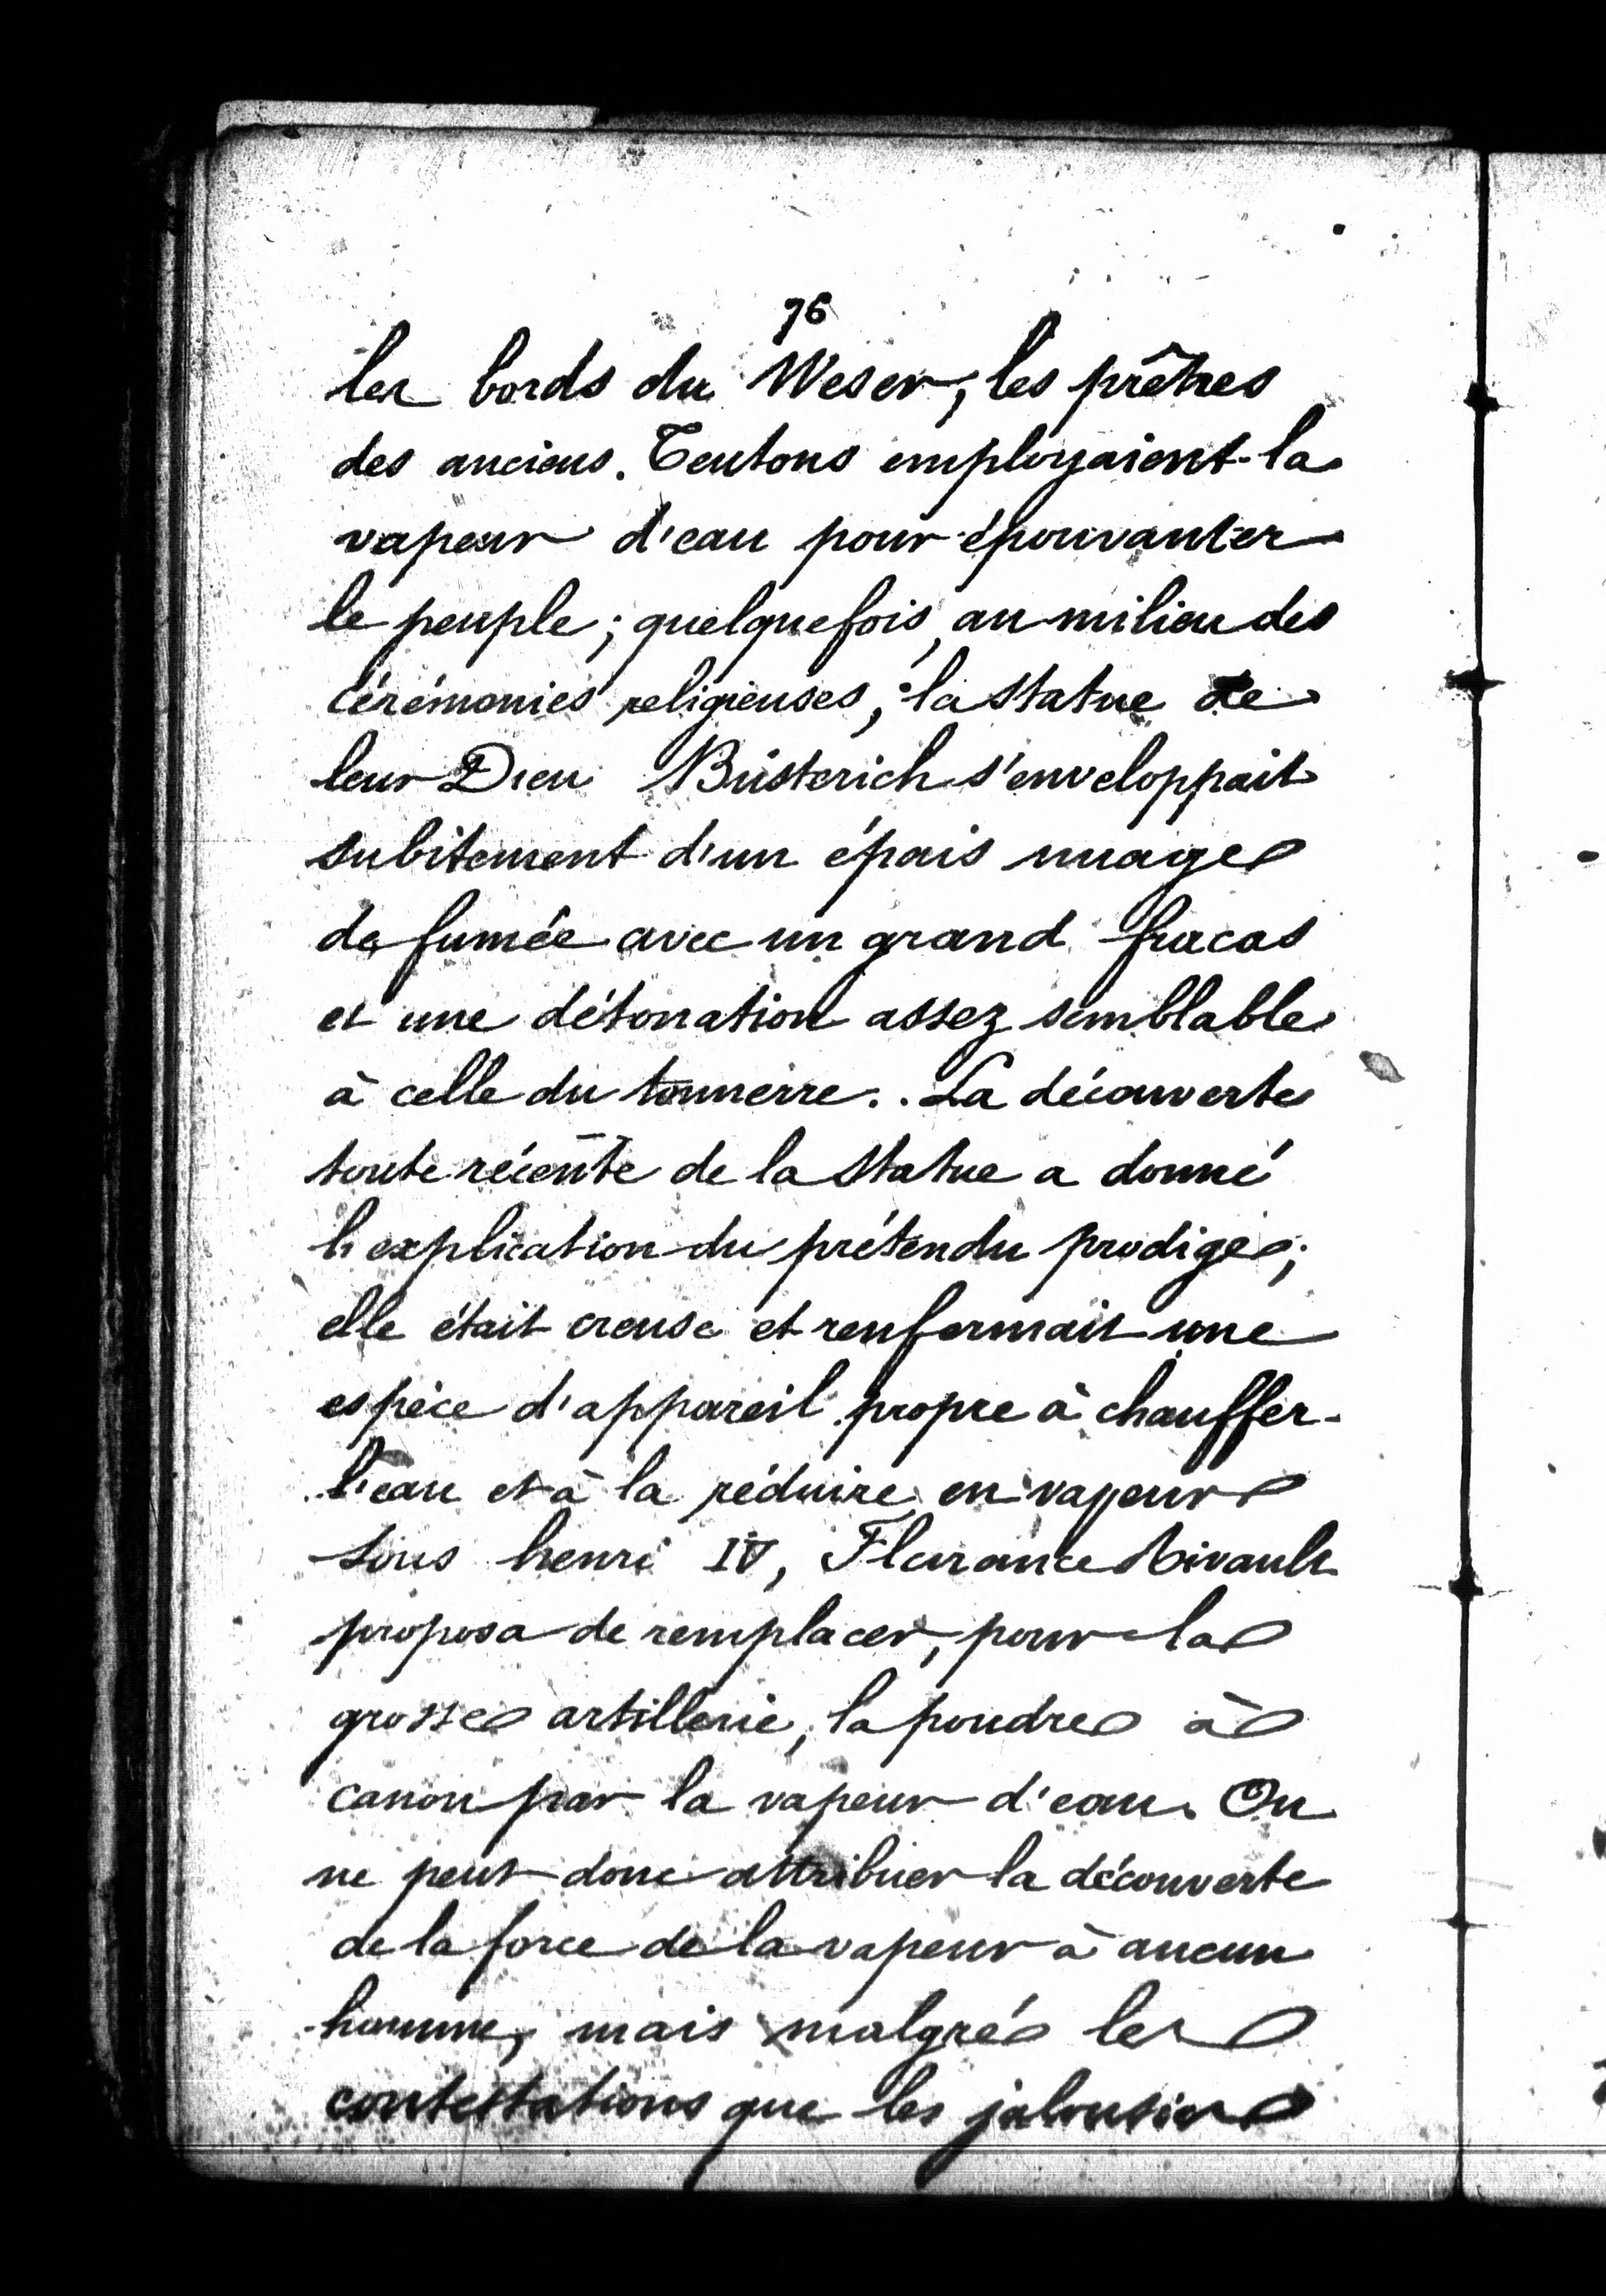 76
les bords du Weser, les prêtres
des anciens. Teutons employaient la
vapeur d'eau pour épouvanter
le peuple; quelquefois, au milieu des
cérémonies religieuses, la statue de
leur Dieu Büsterich s'enveloppait
subitement d'un épais nuage
de fumée avec un grand fracas
et une détonation assez semblable
à celle du tonnerre. La découverte
toute récente de la statue a donné
l'explication du prétendu prodige;
elle était creuse et renfermait une
espèce d'appareil propre à chauffer
l'eau et à la réduire en vapeur
Sous henri IV, Flurance Rivault
proposa de remplacer, pour la
grosse artillerie, la poudre à
canon par la vapeur d'eau. On
ne peut donc attribuer la découverte
de la force de la vapeur à aucun
homme, mais malgré les
contestations que les jalousies